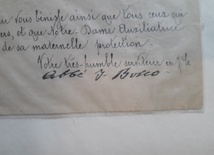 vous bénisse ainsi que tous ceux au
et que Notre-Dame Auxiliatrice
de sa maternelle protection.
Votre très-humble serviteur en
Abbé J Bosco